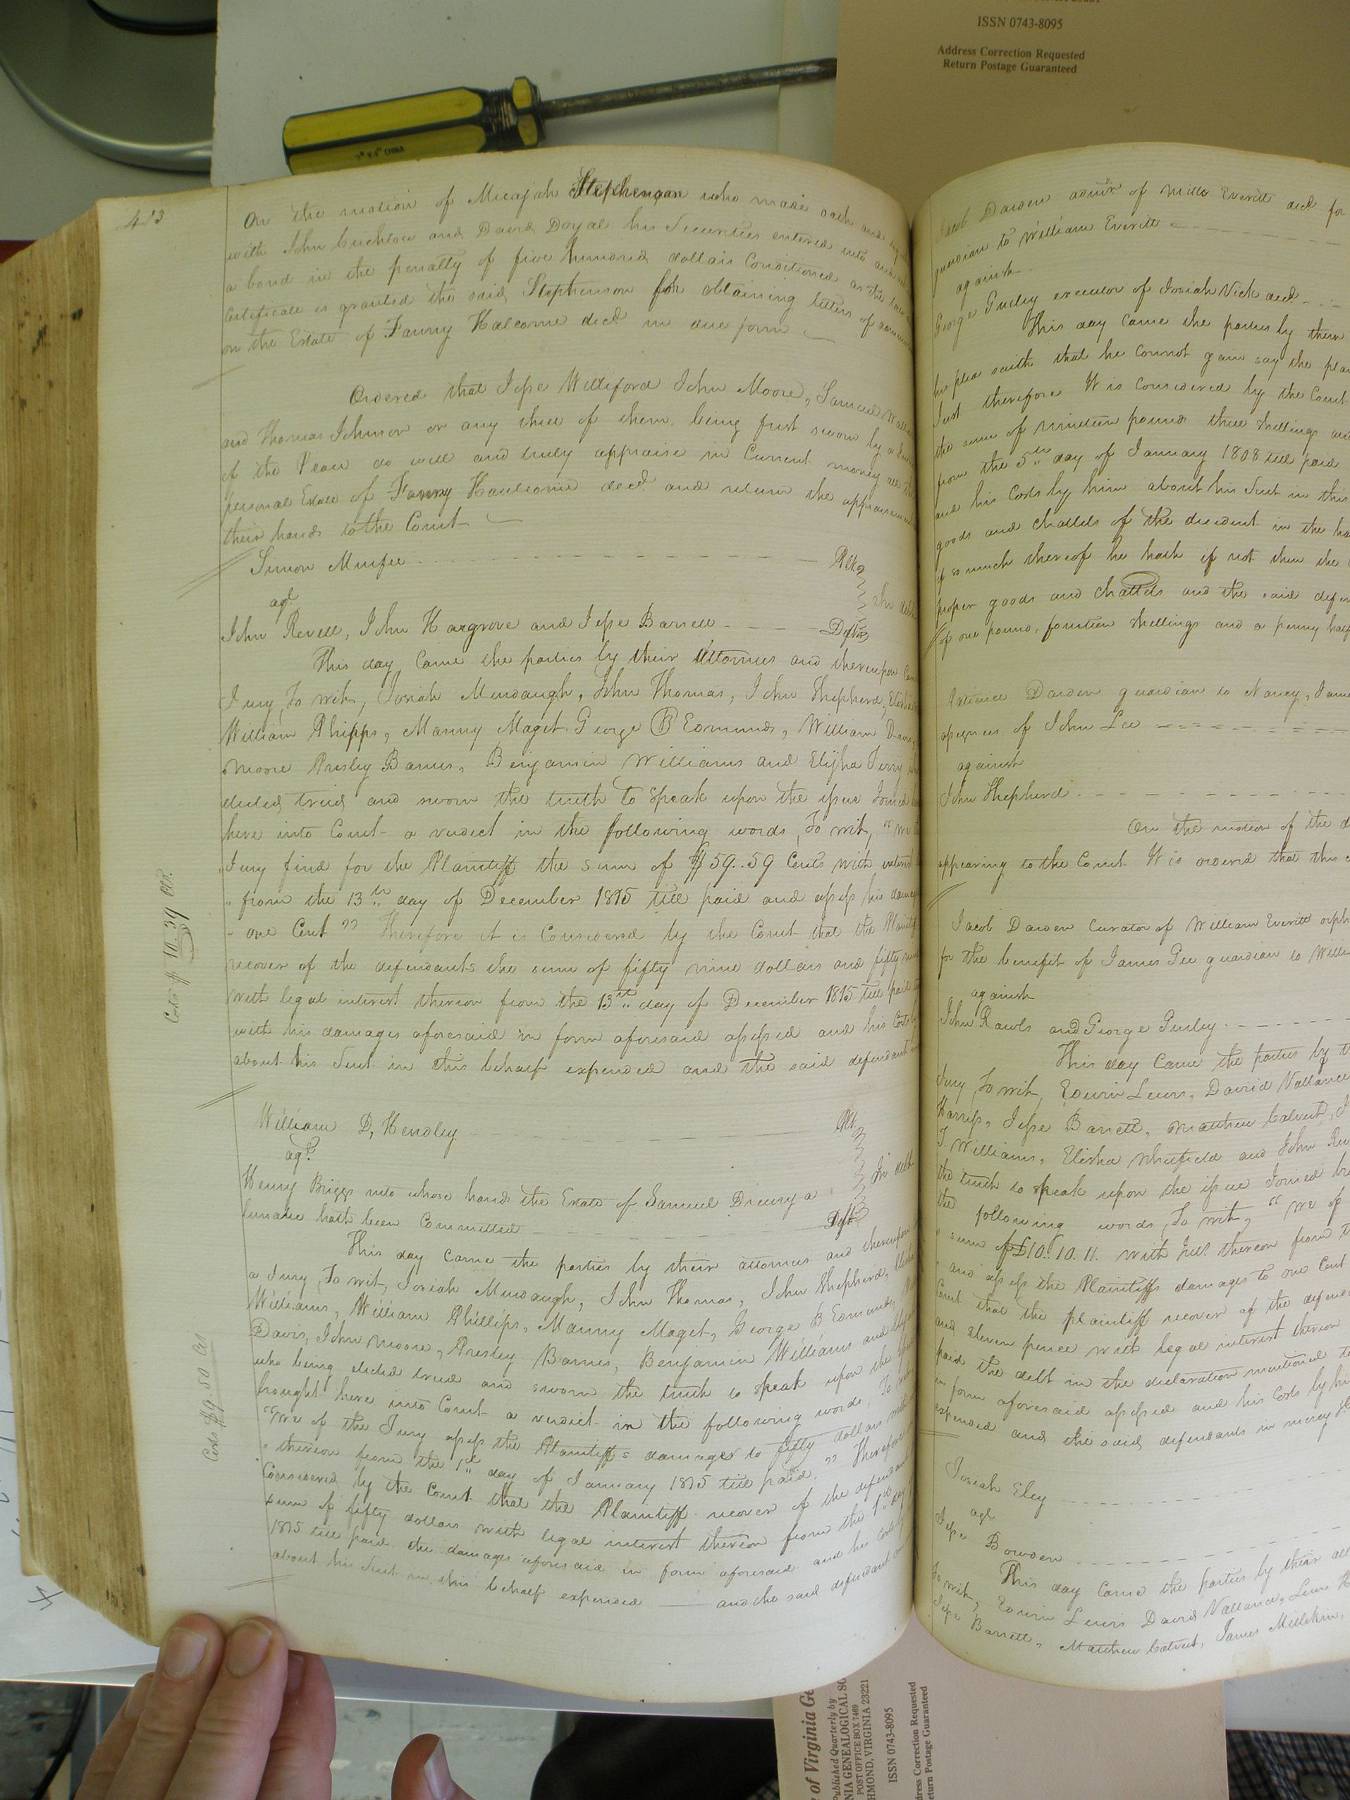 ISSN 0743-8095
Address Correction Requested
Return Postage Guaranteed
413
On the motion of Micajah Stephenson who made oath and
with John Crichlow and David Doyal his Securities entered into and
a bond in the penalty of five hundred dollars Conditioned as the law
Certificate is granted the said Stephenson for obtaining letters of
on the Estate of Fanny Halcome decd in due form
Ordered that Jesse Williford John Moore, Samuel
and Thomas Johnson or any three of them being first sworn by a
of the Peace do well and truly appraise in Current money all the
personal Estate of Fanny Hauscome decd and return the appraisement
their hands to the Court
Simon Murfee Plt
agt
John Revell, John Hargrove and Jesse Barrett Defts
This day Came the parties by their attornies and thereupon
Jury, To wit, Josiah Murdaugh, John Thomas, John Shepherd,
William Phipps, Manny Maget, George B Edmunds, William
Moore Presley Barnes, Benjamin Williams and Elijha
elected, tried and sworn the truth to speak upon the issue Joined
here into Court a verdict in the following words, To wit, "we the
Jury find for the Plaintiff the sum of $59..59 Cents with interest
" from the 13th day of December 1815 till paid and assess his damages
" one Cent" Therefore it is Considered by the Court that the Plaintiff
recover of the defendants the sum of fifty nine dollars and fifty
with legal interest thereon from the 13th day of December 1815 till paid
with his damages aforesaid in form aforesaid assessed and his Costs
about his Suit in this behalf expended and the said defendant
Costs $10.39 Cts.
William D, Hendley Plt
agt
Henry Briggs into whose hands the Estate of Samuel Drewry a In debt
lunatic hath been Committed Deft
This day Came the parties by their attornies and thereupon
a Jury, To wit, Josiah Murdaugh, John Thomas, John Shepherd,
Williams, William Phillips, Manny Maget, George B Edmunds,
Davis, John Moore, Presley Barnes, Benjamin Williams and
who being elected tried and sworn the truth to speak upon the
brought here into Court a verdict in the following words, To wit
"We of the Jury assess the Plaintiffs damages to fifty dollars with
" thereon from the 1st day of January 1815 till paid." Therefore
Considered by the Court that the Plaintiff recover of the defendant
sum of fifty dollars with legal interest thereon from the 1st day
1815 till paid the damages aforesaid in form aforesaid and his Costs
about his Suit in this behalf expended and the said defendant
Costs $9.50 Cts
Jacob Darden admr of Mills Everitt decd for
guardian to William Everitt
against
George Gurley executor of Josiah Vick decd
This day Came the parties by their
his plea saith that he Cannot gain say the
Just therefore It is Considered by the Court
the sum of nineteen pounds three shillings
from the 5th day of January 1808 till paid
and his Costs by him about his Suit in this
goods and chattels of the decedent in the
if so much thereof he hath if not then the
proper goods and chattels and the said
of one pound, fourteen shillings and a penny half
Darden guardian to Nancy,
assignees of John Lee
against
John Shepherd
On the motion of the
appearing to the Court It is ordered that this
Jacob Darden Curator of William Everitt
for the benefit of James Gee guardian to
against
John Rawls and George Gurley
This day Came the parties by
Jury, To wit, Edwin Lewis, David Vallance
Harris, Jesse Barrett, Matthew Calvert,
Williams, Elisha Whitfield and John
the truth to speak upon the issue Joined
the following words, To wit, "We of
" sum of £10. 10. 11. with Int. thereon from
" and assess the Plaintiffs damages to one Cent
Court that the plaintiff recover of the
and eleven pence with legal interest thereon
paid the debt in the declaration mentioned
in form aforesaid assessed and his Costs by
expended and the said defendants in mercy
Josiah Eley
agt
Jesse Bowden
This day Came the parties by their
To wit, Edwin Lewis David Vallance, Lewis
Jesse Barrett, Matthew Calvert, James Millikin,
of Virginia
Published Quarterly by
POST OFFICE BOX 7469
VIRGINIA 23221
ISSN 0743-8095
Address Correction Requested
Return Postage Guaranteed